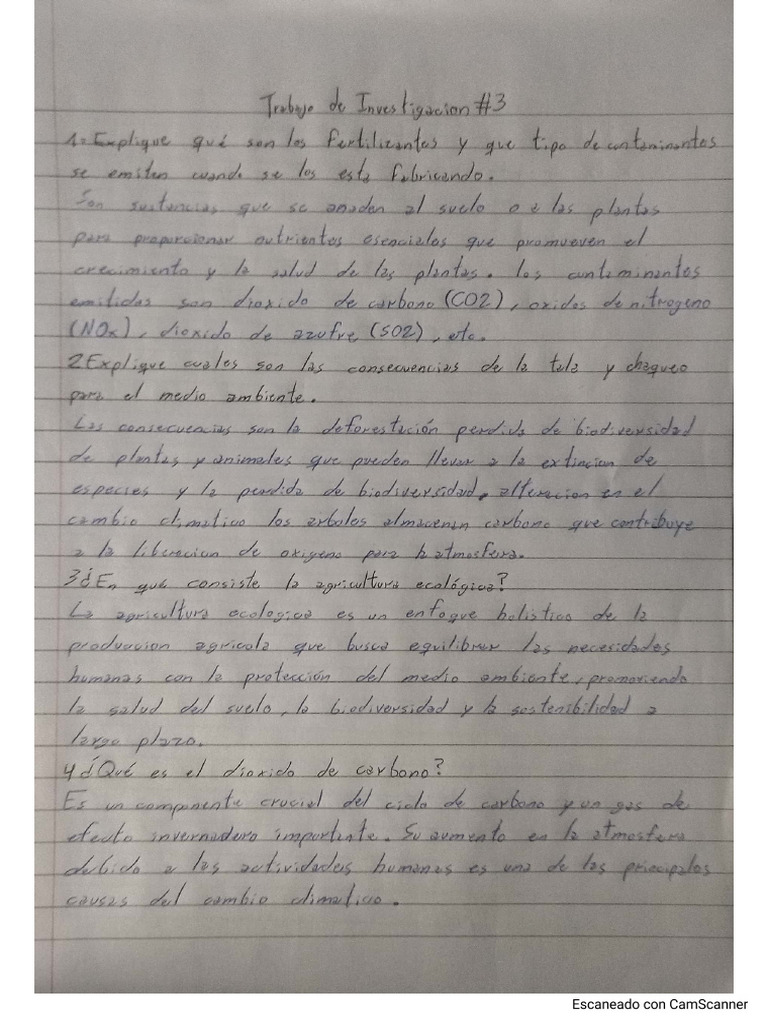 Trabajo de Investigacion #3
1= Explique qué son los fertilizantes y que tipo de contaminantes
se emiten cuando se los esta fabricando.
Son sustancias que se anaden al suelo o a las plantas
para proporcionar nutrientes esenciales que promueven el
crecimiento y la salud de las plantas. los contaminantes
emitidos son dioxido de carbono (CO2), oxidos de nitrogeno
(NOx), dioxido de azufre (SO2), etc.
2 Explique cuales son las consecuencias de la tala y chaqueo
para el medio ambiente.
Las consecuencias son la deforestación perdida de biodiversidad
de plantas y animales que pueden llevar a la extincion de
especies y la perdida de biodiversidad, alteracion en el
cambio climatico los arboles almacenan carbono que contribuye
a la liberacion de oxigeno para la atmosfera.
3¿En qué consiste la agricultura ecológica?
La agricultura ecologica es un enfoque holistico de la
produccion agricola que busca equilibrar las necesidades
humanas con la protección del medio ambiente, promoviendo
la salud del suelo, la biodiversidad y la sostenibilidad a
largo plazo.
4¿Qué es el dioxido de carbono?
Es un componente crucial del ciclo de carbono y un gas de
efecto invernadero importante. Su aumento en la atmosfera
debido a las actividades humanas es una de las principales
causas del cambio climatico.
Escaneado con CamScanner